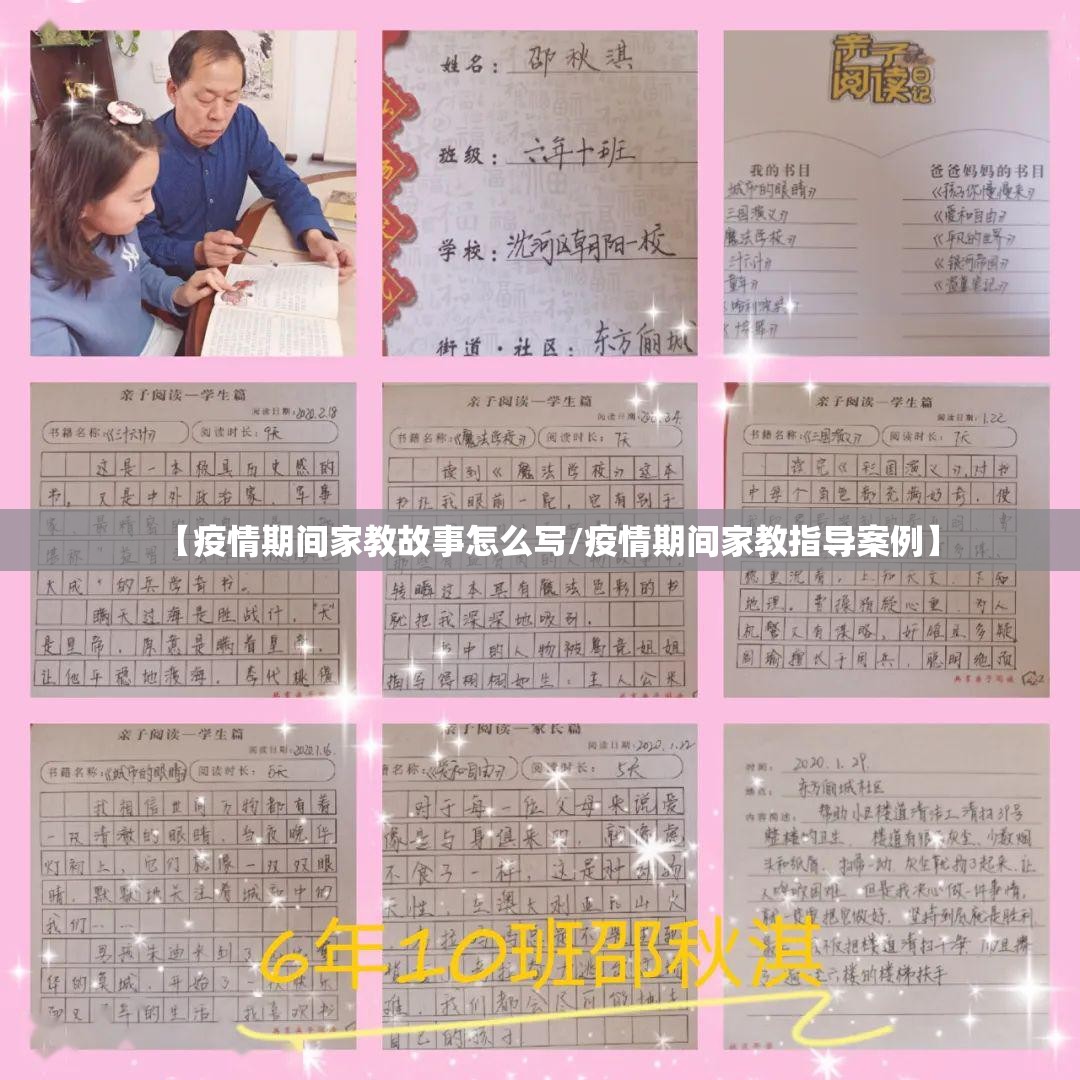 姓名：邵秋淇
班级：六年十班
学校：沈河区朝阳一校
街道·社区：东方俪城
亲子
阅读日记
我的书目
城市的眼睛》
三国演义》
魔法学校》
三十六计》
童年》
爸爸妈妈的书目
《孩子你慢慢来》
《爱和自由》
《平凡的世界》
《银河帝国》
《盗墓笔记》
亲子阅读—学生篇
阅读日期：2020.2.18
书籍名称：《三十六计》 阅读时长：9天
这是一本极具历史感的
书，又是中外政治家、军事
大成”的兵学奇书。
瞒天过海是胜战计，“天”
是皇帝，原意是瞒着皇帝，
让他平稳地渡海。
共享亲子阅读
亲子阅读—学生篇
阅读日期：
书籍名称：《魔法学校》 阅读时长：7天
读到《魔法学校》这本
书让我眼前一亮，它有别于
转瞬这本具有魔法色彩的书
就把我深深地吸引。
书中的人物被葛竞姐姐
描写得栩栩如生：主人公米
亲子阅读—学生篇
阅读日期：1.22
书籍名称：《三国演义》 阅读时长：7天
读完《三国演义》，对书
中每个角色都充满好奇，使
稳重沉着，上知天文，下知
地理。曹操猜疑心重，为人
机警又有谋略，奸雄且多疑
周瑜擅长于用兵，聪明绝顶
共享亲子阅读
【疫情期间家教故事怎么写/疫情期间家教指导案例】
亲子阅读—学生篇
阅读日期：2020.1.16.
书籍名称：《城市的眼睛》 阅读时长：5天
我相信世间万物都有着
一双清澈的眼睛，每夜晚华
灯初上，它们就像一双双眼
睛，默默地关注着城市中的
我们……
男孩朱迪来到了
华的莫城，开始了一段快乐
的生活 我喜欢书
亲子阅读—家长篇
阅读日期：2020.1.22
书籍名称：《爱和自由》 阅读时长：5天
对于每一位父母来说爱
像是与身俱来的，就像虎
不食子一样，这是对动物
天性，在澳大利亚的山火
难，我们都会尽可能地去
自己的孩子
时间：2020.1.29.
地点：东方俪城社区
内容简述：帮助小区楼道清洁工清扫37号
整楼的卫生，楼道有很多灰尘、少数烟
头和纸屑，扫帚一动，灰尘就扬了起来，让
人呼吸困难，但是我决心做一件事情，
就一定要把它做好，坚持到底就是胜利
6年10班邵秋淇